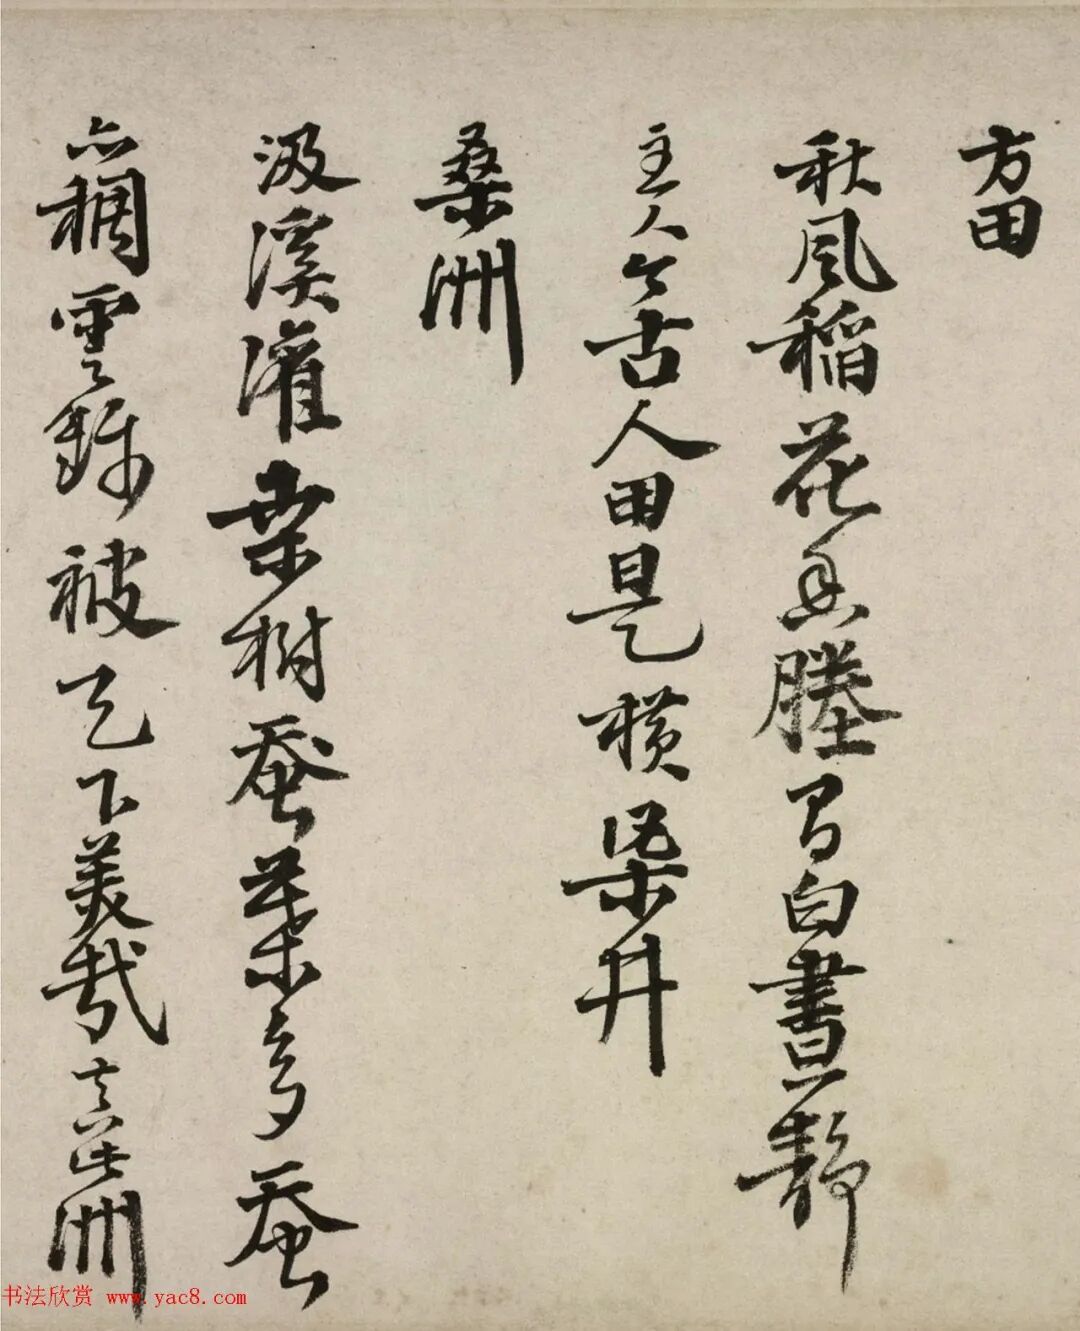 方田
秋風稻花香塍間白晝靜
主人今古人田是横渠井
桑洲
汲溪灌桑樹蚕葉多蚕
亦稠雲錦被天下美哉真此洲
书法欣赏 www.yac8.com